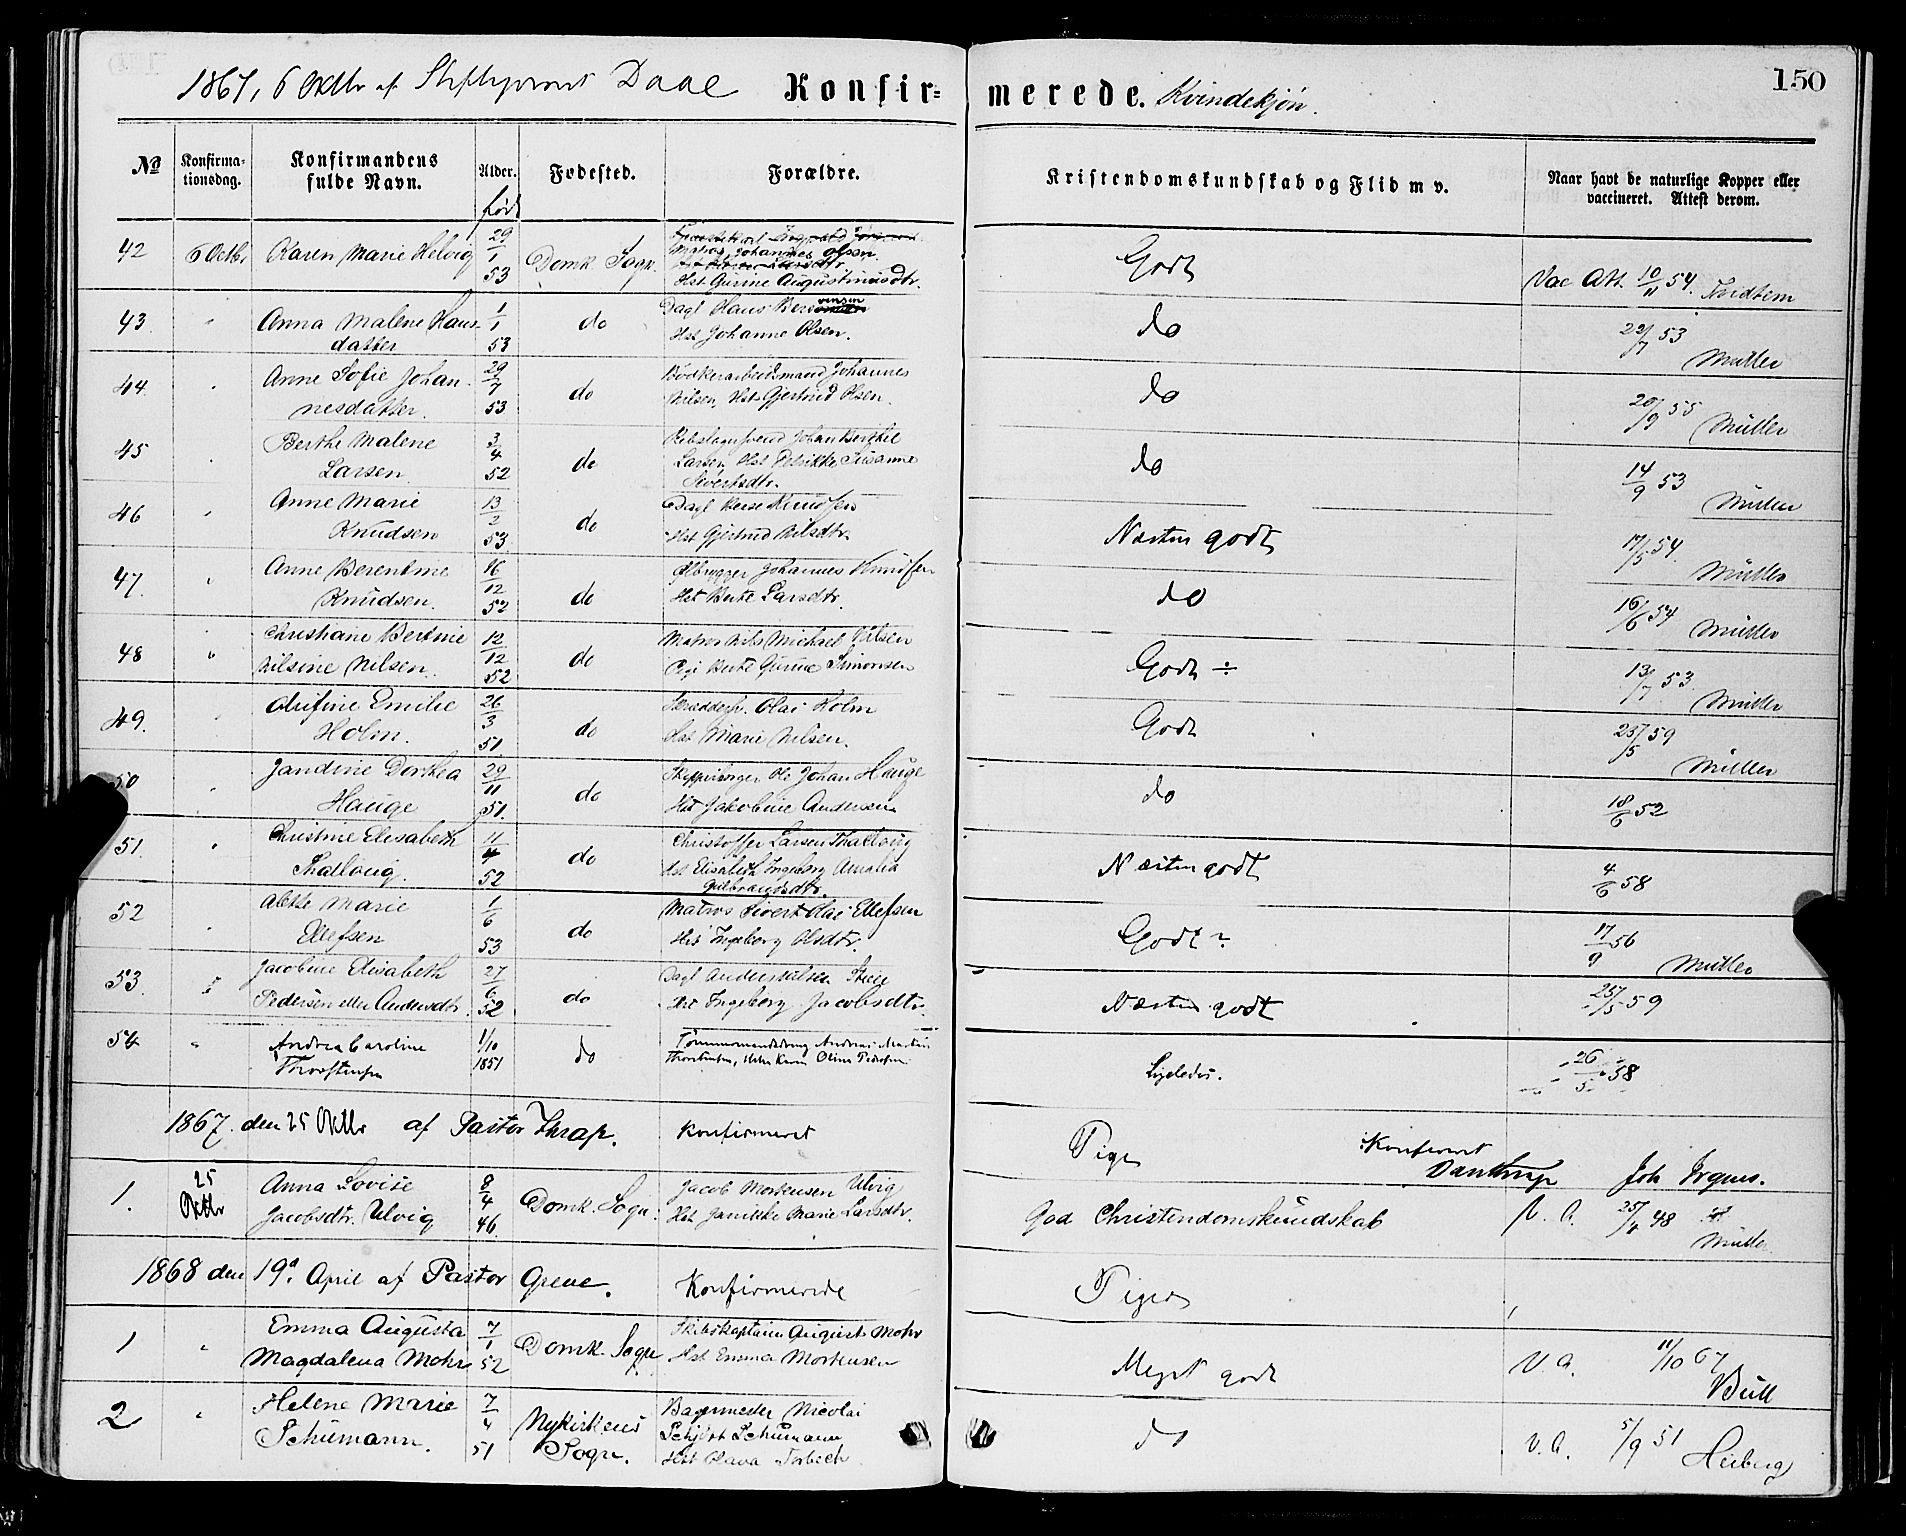 150
1867, 6 Oktbr af Stiftsprovst Daae Konfirmerede. Kvindekjøn.
№ Konfirmationsdag. Konfirmandens fulde Navn. Alder. Fødested. Forældre. Kristendomskundskab og Flid m v. Naar havt de naturlige Kopper eller vaccineret. Attest derom.
født
42 6 Octbr Karen Marie Helvig 29/1 53 Domk. Sogn. Matros Johannes Olsen Hst Gurine Augustinusdtr. Godt Vac Att. 10/11 54.
43 " Anna Malene Hansdatter 1/1 53 do Dagl Hans Hst Johanne Olsen. do 22/7 53 Müller
44 " Anne Sofie Johannesdatter. 29/7 53 do Bødkerarbeidsmand Johannes Nilsen, Hst Gjertrud Olsen. do 20/9 55 Müller
45 " Berthe Malene Larsen 3/4 52 do Johan Larsen Hst Petrikke Susanne Sivertsdtr. do 14/9 53 Müller
46 " Anne Marie Knudsen 13/2 53 do Dagl Knudsen Hst Gjertrud Nilsdtr. Næsten godt 17/5 54. Müller
47. " Anne Berentine Knudsen. 16/12 52 do Ølbrygger Johannes Knudsen Hst Berte Larsdtr. do 16/6 54 Müller
48 " Christiane Bertine Nilsine Nilsen. 12/12 52 do Matros Nils Michael Nilsen Pige Berte Gurine Simonsen Godt ÷ 13/7 53 Müller
49. " Emilie Holm. 26/3 51 do Olai Holm Hst Marie Nilsen. Godt 25/5 59 Müller
50 " Jandine Dorthea Hauge 29/11 51. do Skipperborger Ole Johan Hauge Hst Jakobine Andersen do 18/6 52
51. " Christine Elisabeth Thallaug. 11/4 52 do Christoffer Larsen Thallaug Hst Elisabeth Ingeborg Amalia Gulbrandsdtr. Næsten godt 4/6 58
52 " Marie Ellefsen 1/6 53 do Matros Sivert Olai Ellefsen Hst Ingeborg Olsdtr. Godt 17/9 56 Müller
53. " Jacobine Elisabeth Pedersen eller Andersdtr. 27/6 52 do Dagl Hst Ingeborg Jacobsdtr. Næsten godt 25/5 59
54 " Andrea Caroline Thorstensen 1/10 1851 do Andreas Martin Thorstensen, Karen Oline Pedersen Ligeledes. 26/5 58
1867. den 25 Oktbr af Pastor Thrap. konfirmeret Pige Konfirmeret
1. 25 Oktbr Anna Lovise Jacobsdtr. Ulvig 8/4 46. Domk. Sogn. Jacob Mortensen Ulvig Hst Janikke Marie Larsdtr. God Christendomskundskab V. A. 25/4 48 Müller
1868 den 19d. April af Pastor Greve. Konfirmerede Piger
1 " Emma Augusta Magdalena Mohr 7/1 52 Domk. Sogn Skibskaptain August Mohr Hst Emma Mortensen Meget godt V. A. 11/10 67 Bull
2 " Helene Marie Schumann. 7/4 51 Nykirkens Sogn. Bagermester Nicolai Schjøtt Schumann Hst Olava Torbech do V. A. 5/9 51 Heiberg